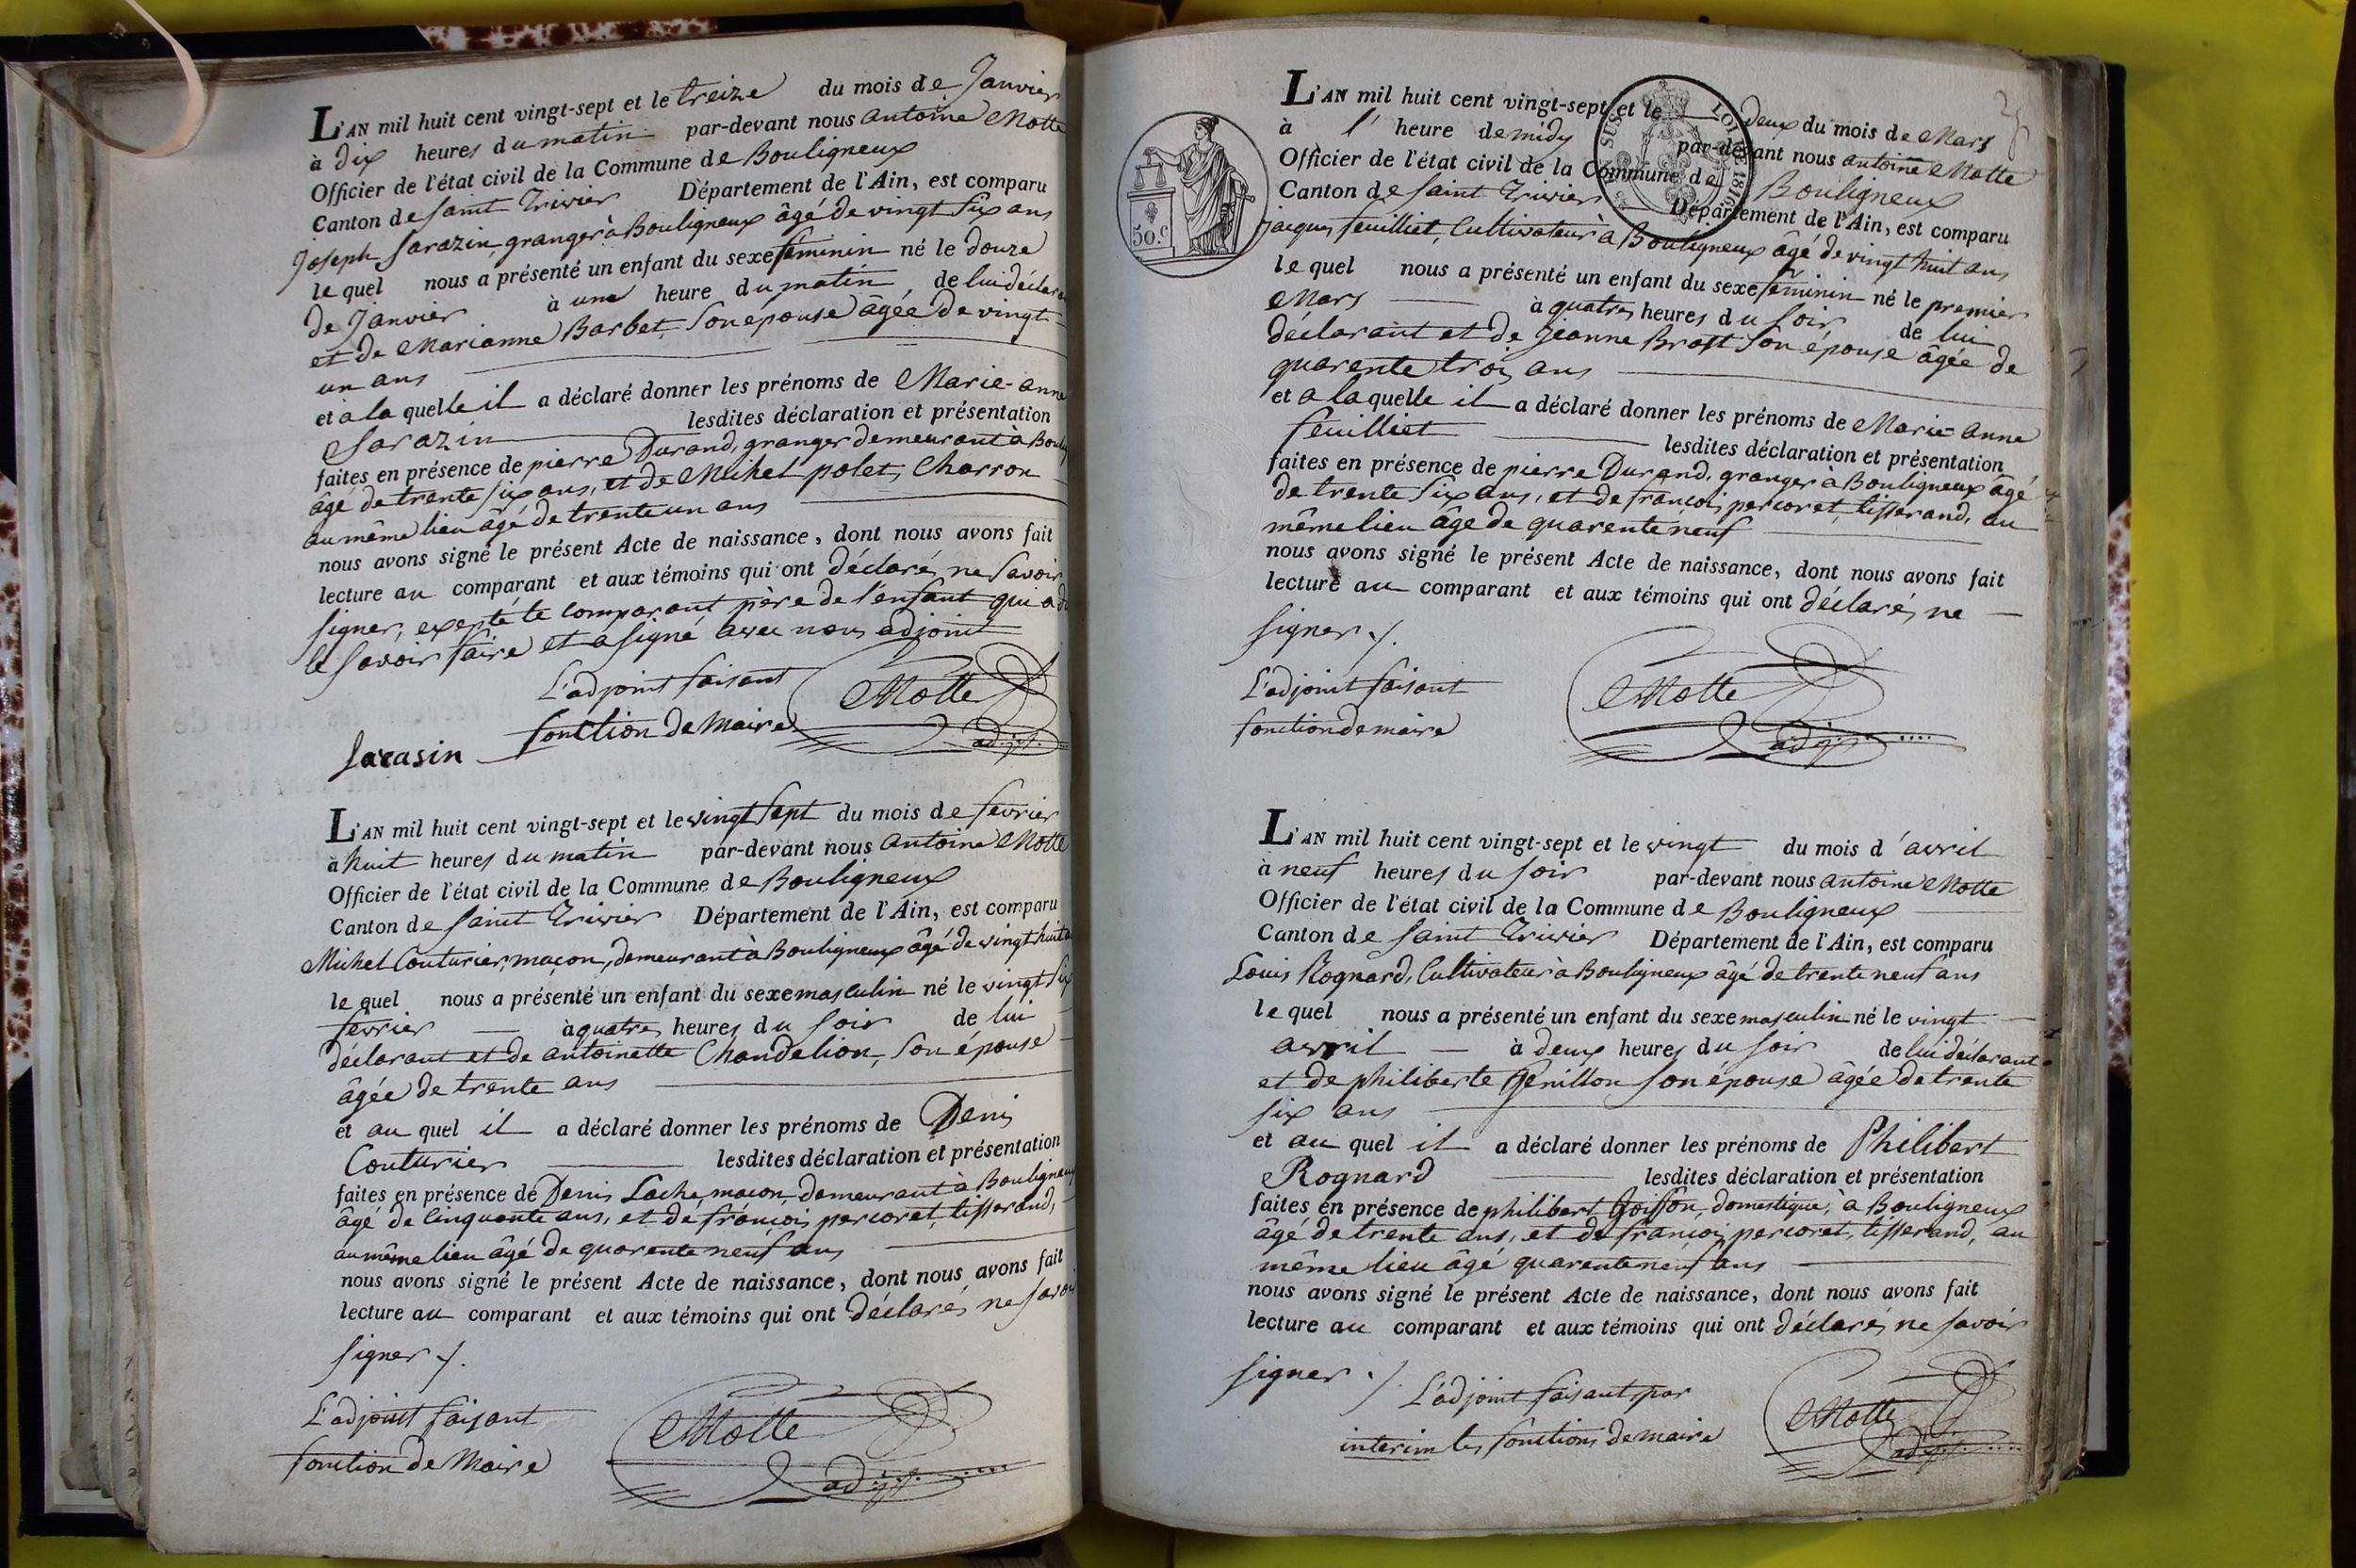 L'AN mil huit cent vingt-sept et le treize du mois de Janvier
à dix heures du matin par-devant nous antoine Motte
Officier de l'état civil de la Commune de Bouligneux
Canton de saint Trivier Département de l'Ain, est comparu
Joseph Sarazin granger à Bouligneux âgé de vingt six ans
le quel nous a présenté un enfant du sexe féminin né le douze
de Janvier à une heure du matin, de lui déclarant
et de Marianne Barbet son épouse âgée de vingt
un ans
et a la quelle il a déclaré donner les prénoms de Marie-anne
Sarazin lesdites déclaration et présentation
faites en présence de pierre Durand, granger demeurant à Boulig
âgé de trente six ans, et de Michel polet, Charron
au même lieu âgé de trente un ans
nous avons signé le présent Acte de naissance, dont nous avons fait
lecture au comparant et aux témoins qui ont déclarés ne savoir
signer, expepté le comparant père de l'enfant qui a dit
le savoir faire et a signé avec nous adjoint
L'adjoint faisant Motte
fonction de Maire adjt.
Sarasin
L'AN mil huit cent vingt-sept et le vingt sept du mois de fevrier
à huit heures du matin par-devant nous antoine Motte
Officier de l'état civil de la Commune de Bouligneux
Canton de saint Trivier Département de l'Ain, est comparu
Michel Couturier, maçon, demeurant à Bouligneux âgé de vingt huit a
le quel nous a présenté un enfant du sexe masculin né le vingt six
fevrier à quatres heures du soir de lui
déclarant et de antoinette Chandelion, son épouse
âgée de trente ans
et au quel il a déclaré donner les prénoms de Denis
Couturier lesdites déclaration et présentation
faites en présence de Denis Lache, maçon, demeurant à Bouligneux
âgé de cinquante ans, et de françois percoret, tisserand,
au même lieu âgé de quarente neuf ans
nous avons signé le présent Acte de naissance, dont nous avons fait
lecture au comparant et aux témoins qui ont déclarés ne savoir
signer ./.
L'adjoint faisant Motte
fonction de Maire adjt.
50.c
SUS
LOI DE 1816
L'AN mil huit cent vingt-sept et le deux du mois de Mars
à l' heure de midy par-devant nous antoine Motte
Officier de l'état civil de la Commune de Bouligneux
Canton de saint Trivier Département de l'Ain, est comparu
Jacques feuilliet, Cultivateur à Bouligneux âgé de vingt huit ans
le quel nous a présenté un enfant du sexe féminin né le premier
Mars à quatres heures du soir de lui
déclarant et de Jeanne Brost son épouse âgée de
quarente trois ans
et a la quelle il a déclaré donner les prénoms de Marie anne
feuilliet lesdites déclaration et présentation
faites en présence de pierre Durand, granger à Bouligneux âgé
de trente six ans, et de francois percoret, tisserand, au
même lieu âge de quarente neuf
nous avons signé le présent Acte de naissance, dont nous avons fait
lecture au comparant et aux témoins qui ont déclarés ne
signer ./.
L'adjoint faisant Motte
fonction de maire adjt.
L'AN mil huit cent vingt-sept et le vingt du mois d'avril
à neuf heures du soir par-devant nous antoine Motte
Officier de l'état civil de la Commune de Bouligneux
Canton de saint Trivier Département de l'Ain, est comparu
Louis Rognard, Cultivateur à Bouligneux âgé de trente neuf ans
le quel nous a présenté un enfant du sexe masculin né le vingt
avril à deux heures du soir de lui déclarant
et de philiberte Genillon son épouse âgée de trente
six ans
et au quel il a déclaré donner les prénoms de Philibert
Rognard lesdites déclaration et présentation
faites en présence de philibert Goisson, domestique, à Bouligneux
âgé de trente ans, et de francois percoret, tisserand, au
même lieu âgé quarente neuf ans
nous avons signé le présent Acte de naissance, dont nous avons fait
lecture au comparant et aux témoins qui ont déclarés ne savoir
signer ./.
L'adjoint faisant par
interim les fonctions de maire Motte
adjt.